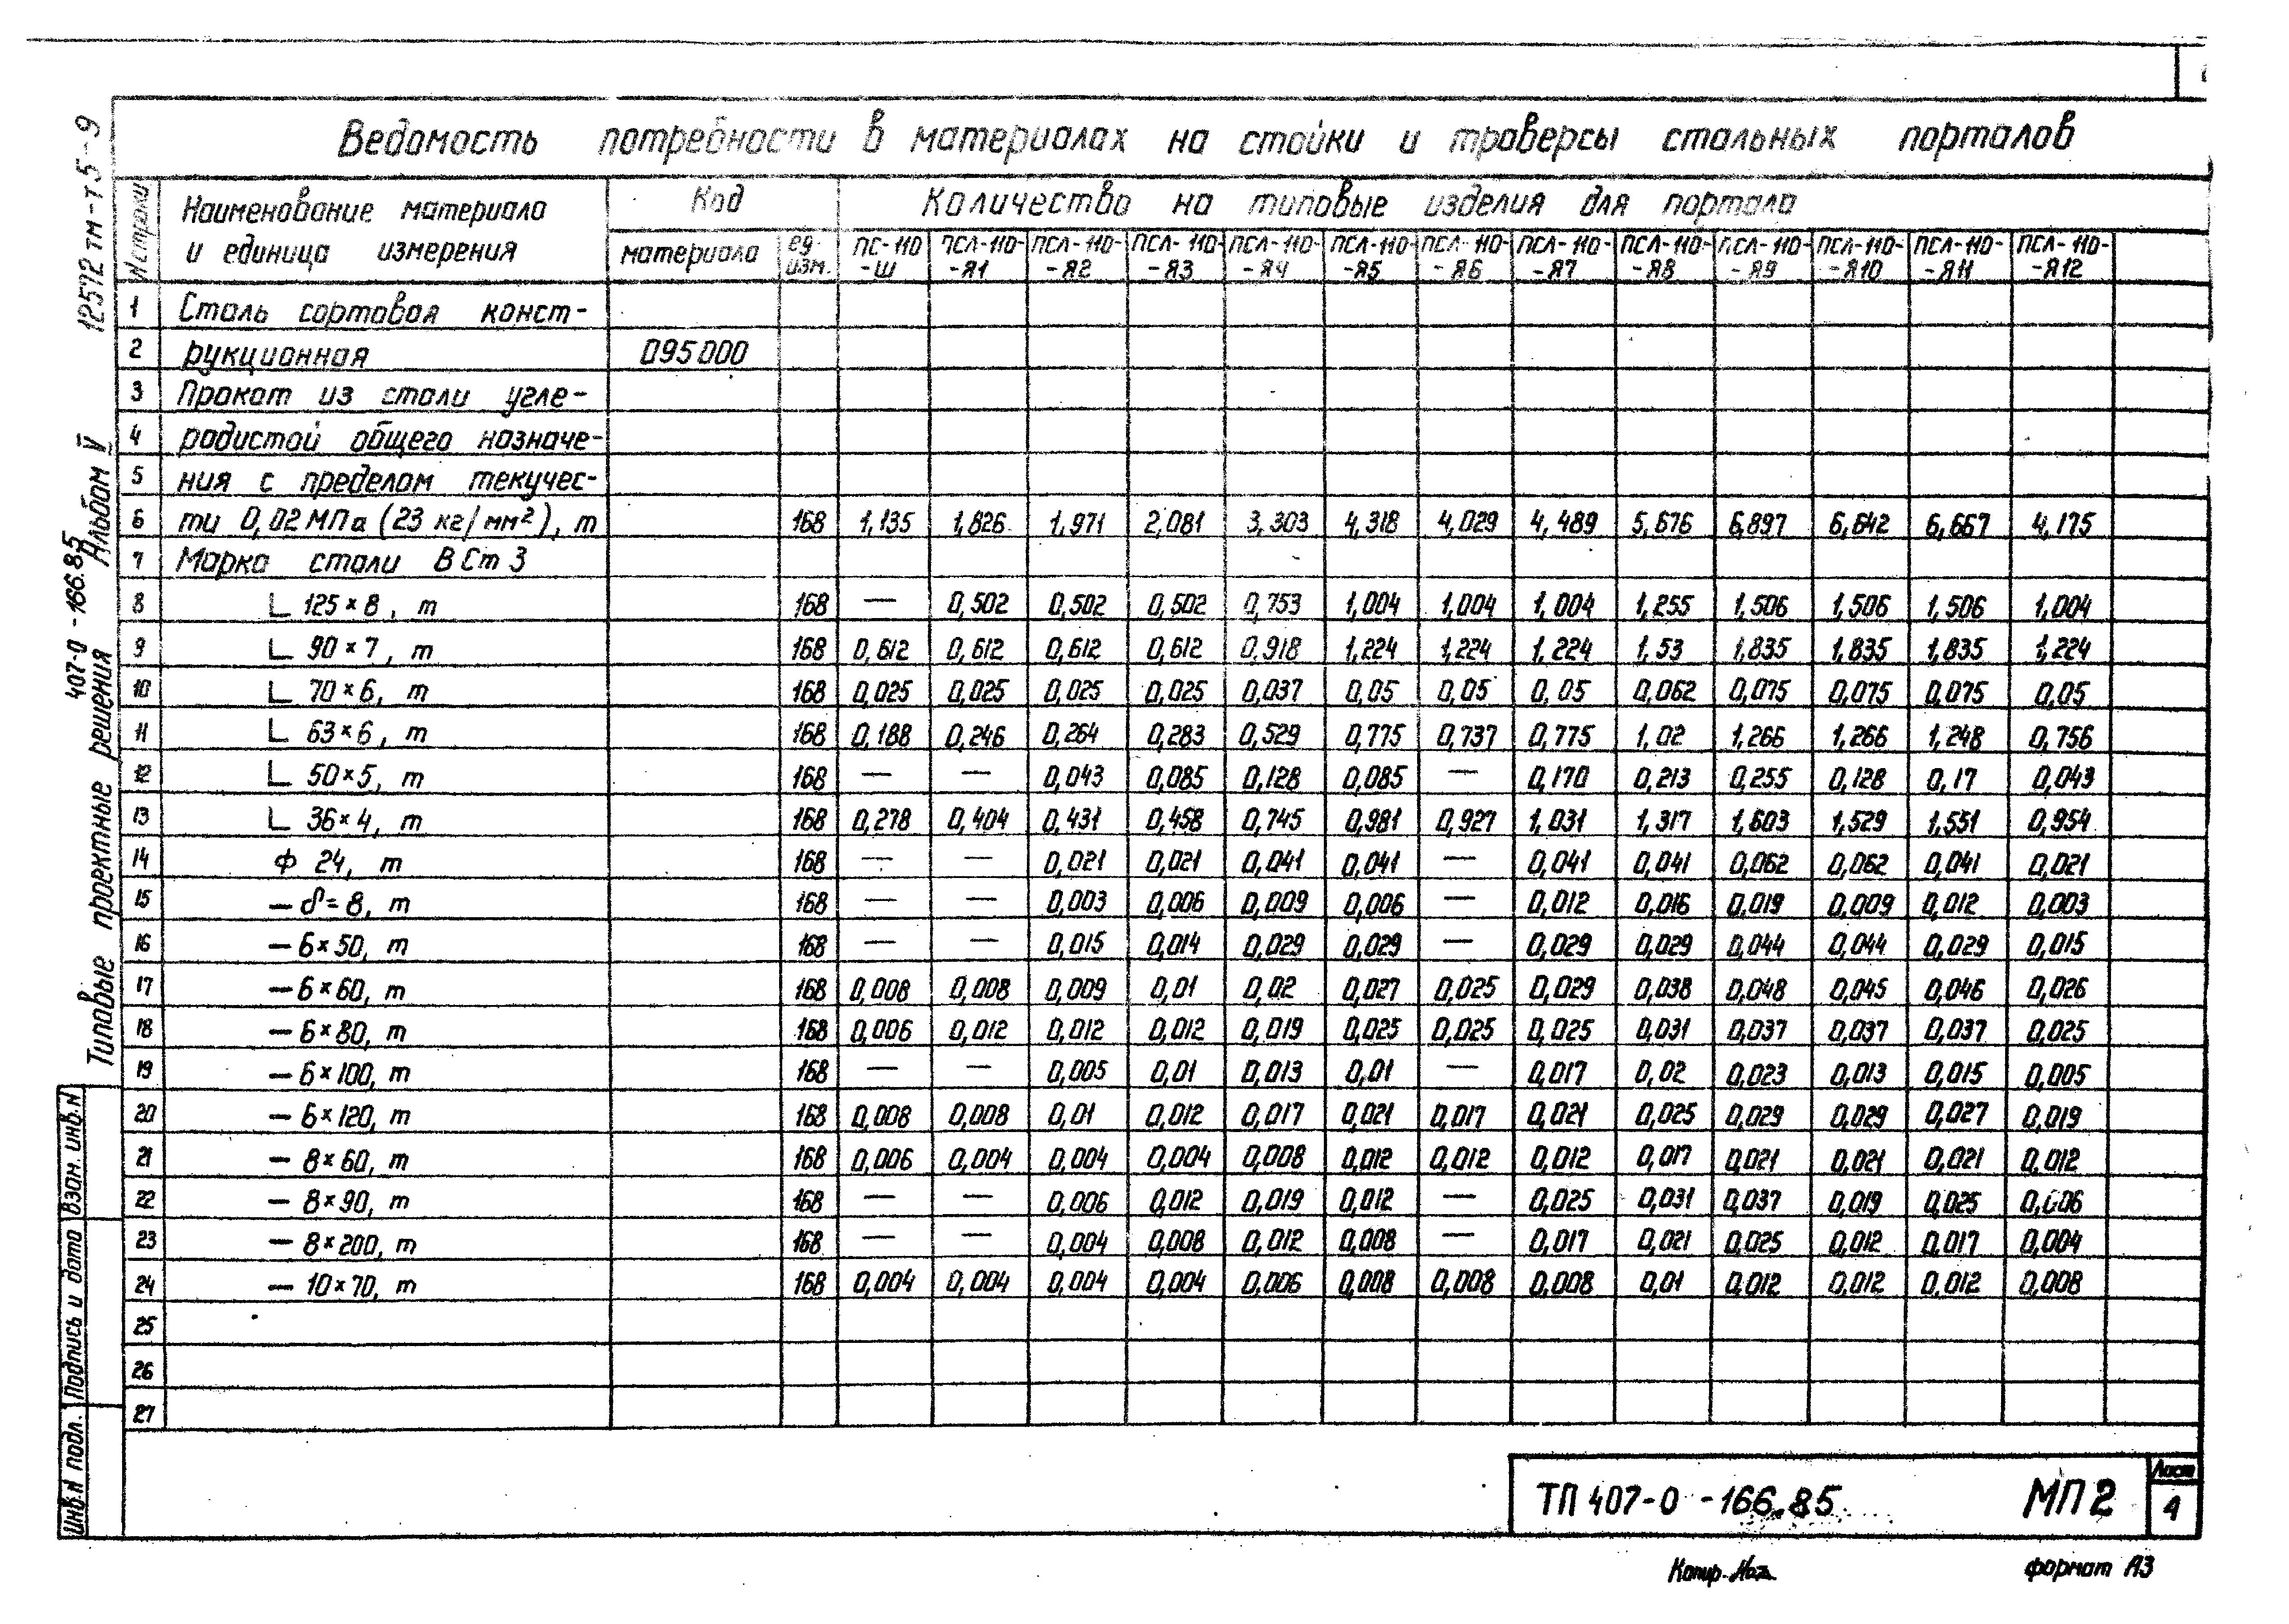 Ведомость потребности в материалах на стойки и траверсы стальных порталов
N строки
Наименование материала
и единица измерения
Код
материала
ед. изм.
Количество на типовые изделия для портала
ПС-110 -Ш ПСЛ-110- -Я1 ПСЛ-110- -Я2 ПСЛ-110- -Я3 ПСЛ-110- -Я4 ПСЛ-110- -Я5 ПСЛ-110- -Я6 ПСЛ-110- -Я7 ПСЛ-110- -Я8 ПСЛ-110- -Я9 ПСЛ-110- -Я10 ПСЛ-110- -Я11 ПСЛ-110- -Я12
1 Сталь сортовая конст-
2 рукционная 095000
3 Прокат из стали угле-
4 родистой общего назначе-
5 ния с пределом текучес-
6 ти 0,02 МПа (23 кг/мм²), т 168 1,135 1,826 1,971 2,081 3,303 4,318 4,029 4,489 5,676 6,897 6,642 6,667 4,175
7 Марка стали ВСт 3
8 ∟ 125×8, т 168 — 0,502 0,502 0,502 0,753 1,004 1,004 1,004 1,255 1,506 1,506 1,506 1,004
9 ∟ 90×7, т 168 0,612 0,612 0,612 0,612 0,918 1,224 1,224 1,224 1,53 1,835 1,835 1,835 1,224
10 ∟ 70×6, т 168 0,025 0,025 0,025 0,025 0,037 0,05 0,05 0,05 0,062 0,075 0,075 0,075 0,05
11 ∟ 63×6, т 168 0,188 0,246 0,264 0,283 0,529 0,775 0,737 0,775 1,02 1,266 1,266 1,248 0,756
12 ∟ 50×5, т 168 — — 0,043 0,085 0,128 0,085 — 0,170 0,213 0,255 0,128 0,17 0,043
13 ∟ 36×4, т 168 0,278 0,404 0,431 0,458 0,745 0,981 0,927 1,031 1,317 1,603 1,529 1,551 0,954
14 ф 24, т 168 — — 0,021 0,021 0,041 0,041 — 0,041 0,041 0,062 0,062 0,041 0,021
15 — δ=8, т 168 — — 0,003 0,006 0,009 0,006 — 0,012 0,016 0,019 0,009 0,012 0,003
16 — 6×50, т 168 — — 0,015 0,014 0,029 0,029 — 0,029 0,029 0,044 0,044 0,029 0,015
17 — 6×60, т 168 0,008 0,008 0,009 0,01 0,02 0,027 0,025 0,029 0,038 0,048 0,045 0,046 0,026
18 — 6×80, т 168 0,006 0,012 0,012 0,012 0,019 0,025 0,025 0,025 0,031 0,037 0,037 0,037 0,025
19 — 6×100, т 168 — — 0,005 0,01 0,013 0,01 — 0,017 0,02 0,023 0,013 0,015 0,005
20 — 6×120, т 168 0,008 0,008 0,01 0,012 0,017 0,021 0,017 0,021 0,025 0,029 0,029 0,027 0,019
21 — 8×60, т 168 0,006 0,004 0,004 0,004 0,008 0,012 0,012 0,012 0,017 0,021 0,021 0,021 0,012
22 — 8×90, т 168 — — 0,006 0,012 0,019 0,012 — 0,025 0,031 0,037 0,019 0,025 0,006
23 — 8×200, т 168 — — 0,004 0,008 0,012 0,008 — 0,017 0,021 0,025 0,012 0,017 0,004
24 — 10×70, т 168 0,004 0,004 0,004 0,004 0,006 0,008 0,008 0,008 0,01 0,012 0,012 0,012 0,008
25
26
27
12572 тм-т5-9
407-0 -166.85 Альбом V
Типовые проектные решения
Взам. инв. N
Подпись и дата
Инв. N подл.
ТП 407-0 -166.85 МП2
Лист
4
Копир.
формат А3